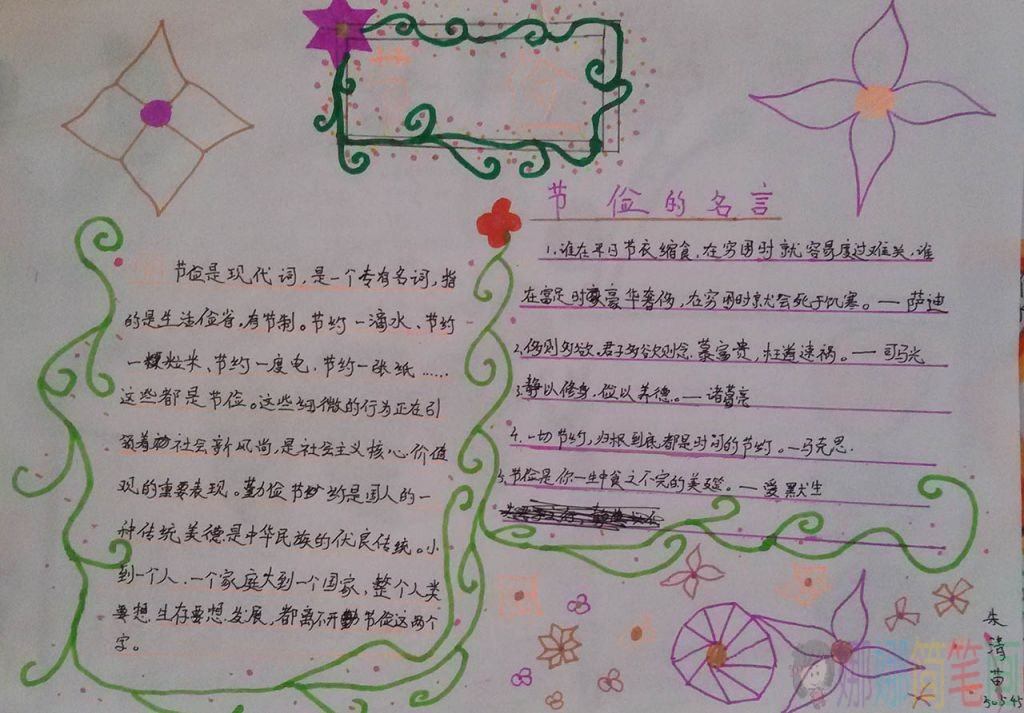 节俭
节俭的名言
节俭是现代词,是一个专有名词,指
的是生活俭省,有节制。节约一滴水、节约
一粒米、节约一度电,节约一张纸……
这些都是节俭。这些细微的行为正在引
领着社会新风尚,是社会主义核心价值
观的重要表现。勤俭节约是国人的一
种传统美德是中华民族的优良传统。小
到一个人,一个家庭大到一个国家,整个人类
要想生存要想发展,都离不开节俭这两个
字。
1.谁在平日节衣缩食,在穷困时就容易度过难关,谁
在富足时豪华奢侈,在穷困时就会死于饥寒。—萨迪
2.侈则多欲,君子多欲则念慕富贵,枉道速祸。—司马光
3.静以修身,俭以养德。—诸葛亮
4.一切节约,归根到底都是时间的节约。—马克思.
5.节俭是你一生中食之不完的美筵。—爱默生
朱
菡
50545
娜娜简笔画